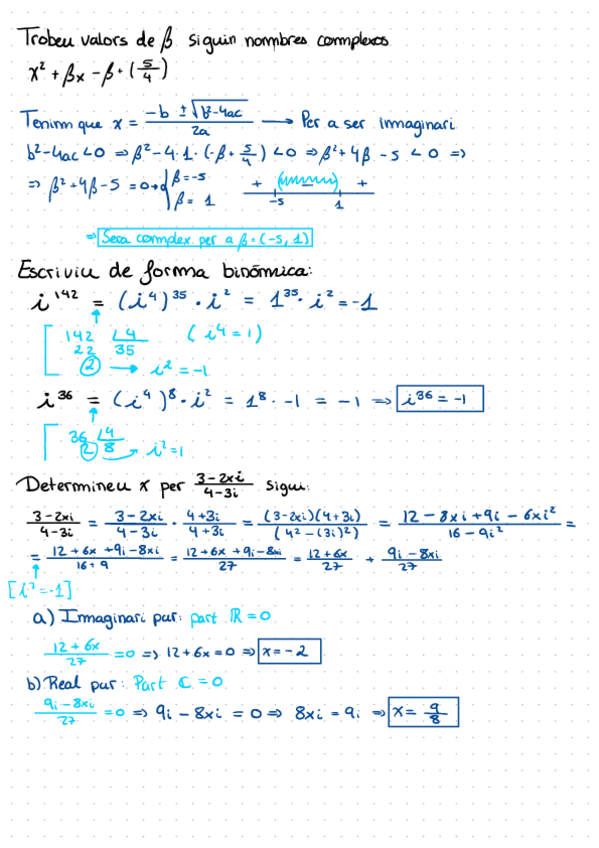 Trobeu valors de β siguin nombres complexos
x² + βx - β + (5/4)
Tenim que x = (-b ± √(b²-4ac))/2a → Per a ser immaginari
b²-4ac <0 ⇒ β²-4·1·(-β+5/4) <0 ⇒ β²+4β -5 < 0 ⇒
⇒ β²+4β-5 = 0 → { β=-5
β= 1
+ - +
-5 1
⇒ Sera complex. per a β=(-5, 1)
Escriviu de forma binòmica:
i¹⁴² = (i⁴)³⁵ · i² = 1³⁵ · i² = -1
142 |4 (i⁴=1)
22 35
2 → i² = -1
i³⁶ = (i⁴)⁸ · i² = 1⁸ · -1 = -1 ⇒ i³⁶ = -1
36 |4
2 8 → i²=1
Determineu x per (3-2xi)/(4-3i) sigui:
(3-2xi)/(4-3i) = (3-2xi)/(4-3i) · (4+3i)/(4+3i) = (3-2xi)(4+3i)/(4²-(3i)²) = (12-8xi+9i-6xi²)/(16-9i²) =
= (12+6x+9i-8xi)/(16+9) = (12+6x+9i-8xi)/27 = (12+6x)/27 + (9i-8xi)/27
[i²=-1]
a) Immaginari pur: part ℝ = 0
(12+6x)/27 = 0 ⇒ 12+6x=0 ⇒ x=-2
b) Real pur: Part ℂ = 0
(9i-8xi)/27 = 0 ⇒ 9i-8xi = 0 ⇒ 8xi = 9i ⇒ x= 9/8